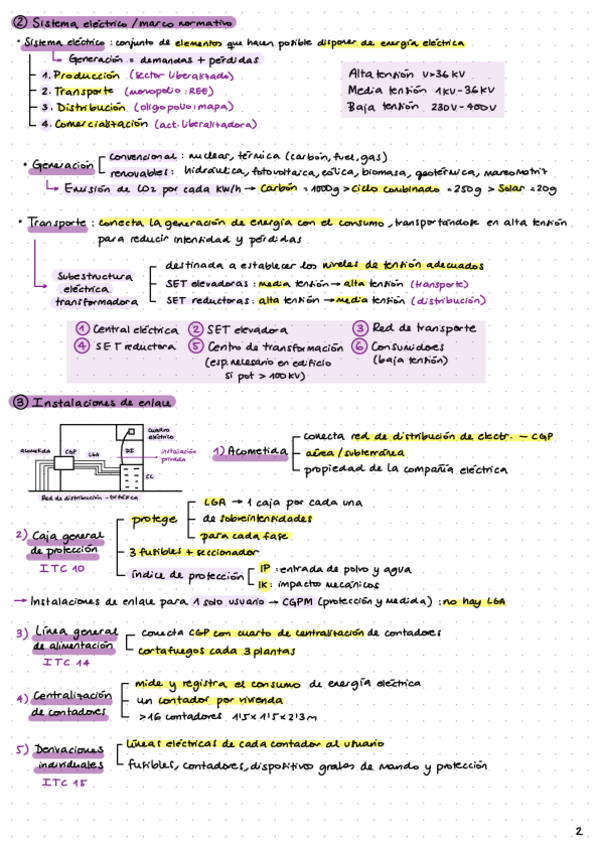 ② Sistema eléctrico / marco normativo
• Sistema eléctrico : conjunto de elementos que hacen posible disponer de energía eléctrica
Generación = demandas + pérdidas
1. Producción (sector liberalizado)
2. Transporte (monopolio: REE)
3. Distribución (oligopolio: mapa)
4. Comercialización (act. liberalizadora)
Alta tensión V>36 kV
Media tensión 1kV-36kV
Baja tensión 230V-400V
• Generación
convencional : nuclear, térmica (carbón, fuel, gas)
renovables : hidráulica, fotovoltaica, eólica, biomasa, geotérmica, mareomotriz
Emisión de CO2 por cada kW/h → Carbón = 1000g > Ciclo combinado = 250g > Solar = 20g
• Transporte : conecta la generación de energía con el consumo, transportándose en alta tensión
para reducir intensidad y pérdidas
Subestructura
eléctrica
transformadora
destinada a establecer los niveles de tensión adecuados
SET elevadoras : media tensión → alta tensión (transporte)
SET reductoras : alta tensión → media tensión (distribución)
① Central eléctrica ② SET elevadora ③ Red de transporte
④ SET reductora ⑤ Centro de transformación ⑥ Consumidores
(esp. necesario en edificio (baja tensión)
si pot > 100 kV)
③ Instalaciones de enlace
cuadro
eléctrico
acometida CGP LGA DI instalación
privada
CC
Red de distribución - trifásica
1) Acometida
conecta red de distribución de electr. — CGP
aérea / subterránea
propiedad de la compañía eléctrica
2) Caja general
de protección
ITC 10
protege
LGA → 1 caja por cada una
de sobreintensidades
para cada fase
3 fusibles + seccionador
índice de protección
IP : entrada de polvo y agua
IK : impactos mecánicos
→ Instalaciones de enlace para 1 solo usuario → CGPM (protección y medida) : no hay LGA
3) Línea general
de alimentación
ITC 14
conecta CGP con cuarto de centralización de contadores
cortafuegos cada 3 plantas
4) Centralización
de contadores
mide y registra el consumo de energía eléctrica
un contador por vivienda
>16 contadores 1'5 x 1'5 x 2'3 m
5) Derivaciones
individuales
ITC 15
líneas eléctricas de cada contador al usuario
fusibles, contadores, dispositivo grales de mando y protección
2